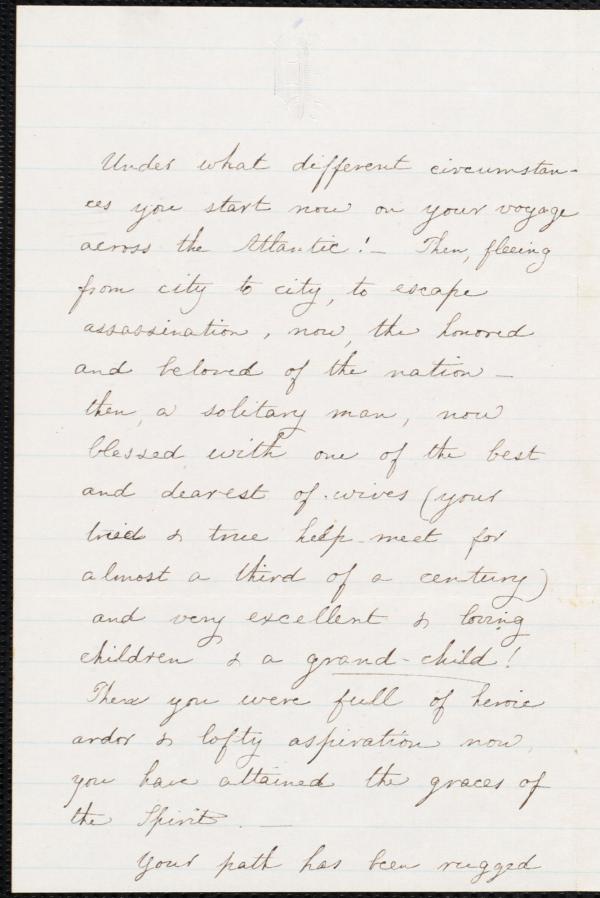 Under what different circumstan-
ces you start now on your voyage
across the Atlantic! – Then, fleeing
from city to city, to escape
assassination, now, the honored
and beloved of the nation –
then, a solitary man, now
blessed with one of the best
and dearest of wives (your
tried & true help-meet for
almost a third of a century)
and very excellent & loving
children & a grand-child!
Then you were full of heroic
ardor & lofty aspiration now,
you have attained the graces of
the Spirit. –
Your path has been rugged